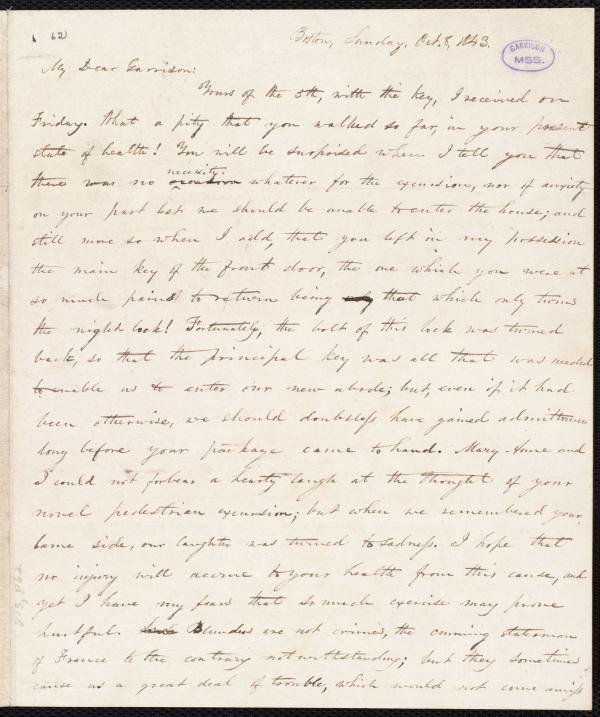 62
Boston, Sunday, Oct. 8, 1843.
GARRISON
MSS.
My Dear Garrison:
Yours of the 5th, with the key, I received on
Friday. What a pity that you walked so far, in your present
state of health! You will be surprised when I tell you that
there was no necessity whatever for the excursion, nor of anxiety
on your part lest we should be unable to enter the house; and
still more so when I add, that you left in my possession
the main key of the front door, the one which you were at
so much pains to return being that which only turns
the night lock! Fortunately, the bolt of this lock was turned
back, so that the principal key was all that was needed
to enable us to enter our new abode; but, even if it had
been otherwise, we should doubtless have gained admittance
long before your package came to hand. Mary Anne and
I could not forbear a hearty laugh at the thought of your
novel pedestrian excursion; but when we remembered your
lame side, our laughter was turned to sadness. I hope that
no injury will accrue to your health from this cause, and
yet I have my fears that so much exercise may prove
hurtful. Blunders are not crimes, the cunning statesman
of France to the contrary notwithstanding; but they sometimes
cause us a great deal of trouble, which would not come amiss